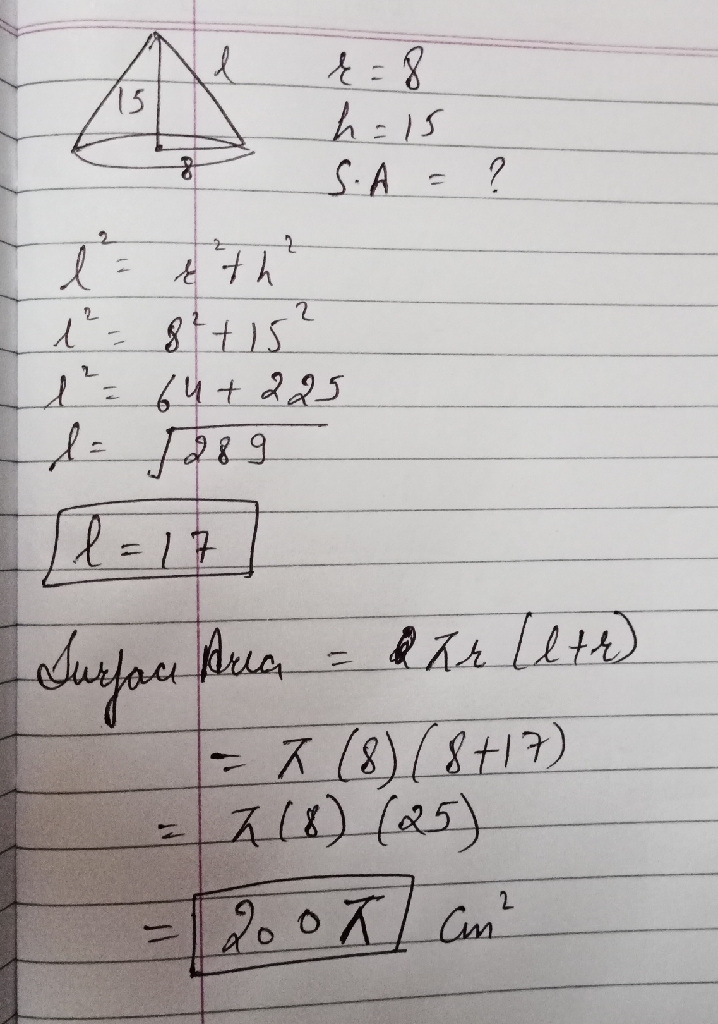 l
15
8
r = 8
h = 15
S.A = ?
l² = r² + h²
l² = 8² + 15²
l² = 64 + 225
l = √289
l = 17
Surface Area = πr (l+r)
= π (8) (8+17)
= π (8) (25)
= 200π cm²